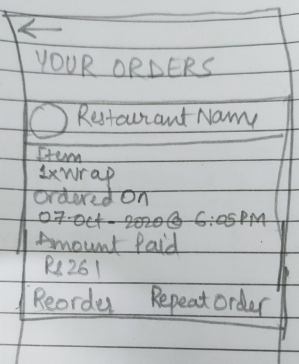 YOUR ORDERS
Restaurant Name
Item
1xWrap
Ordered On
07-Oct-2020@ 6:05PM
Amount Paid
Rs 261
Reorder Repeat Order